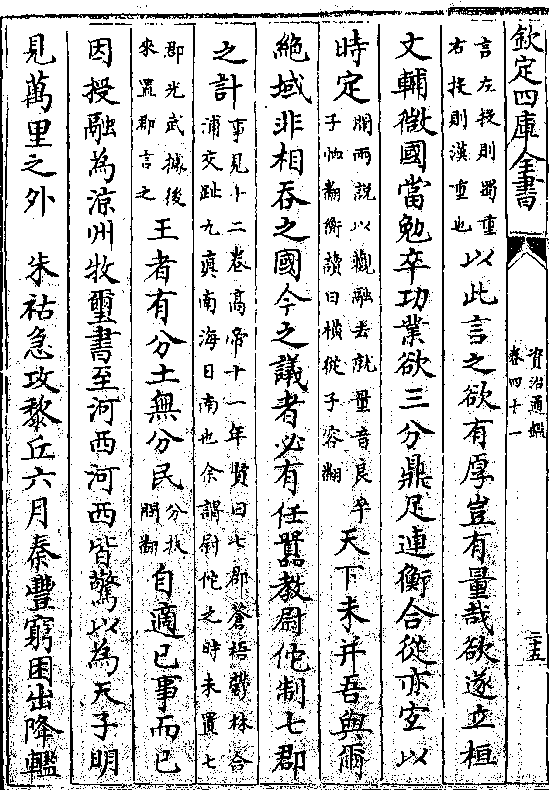 欽定四庫全書
資治通鑑
卷四十一
二十五
言左投則蜀重
右投則漢重也
以此言之欲有厚豈有量哉欲遂立桓
文輔微國當勉卒功業欲三分鼎足連衡合從亦宜以
時定
開兩說以觀融去就量音良卒
子恤翻衡讀曰橫從子容翻
天下未并吾與爾
絶域非相吞之國今之議者必有任囂教尉佗制七郡
之計
事見十二卷高帝十一年賢曰七郡蒼梧鬱林合
浦交趾九真南海日南也余謂尉佗之時未置七
郡光武據後
來置郡言之
王者有分土無分民
分扶
問翻
自適已事而已
因授融為涼州牧璽書至河西河西皆驚以為天子明
見萬里之外　朱祜急攻黎丘六月秦豐窮困出降轞